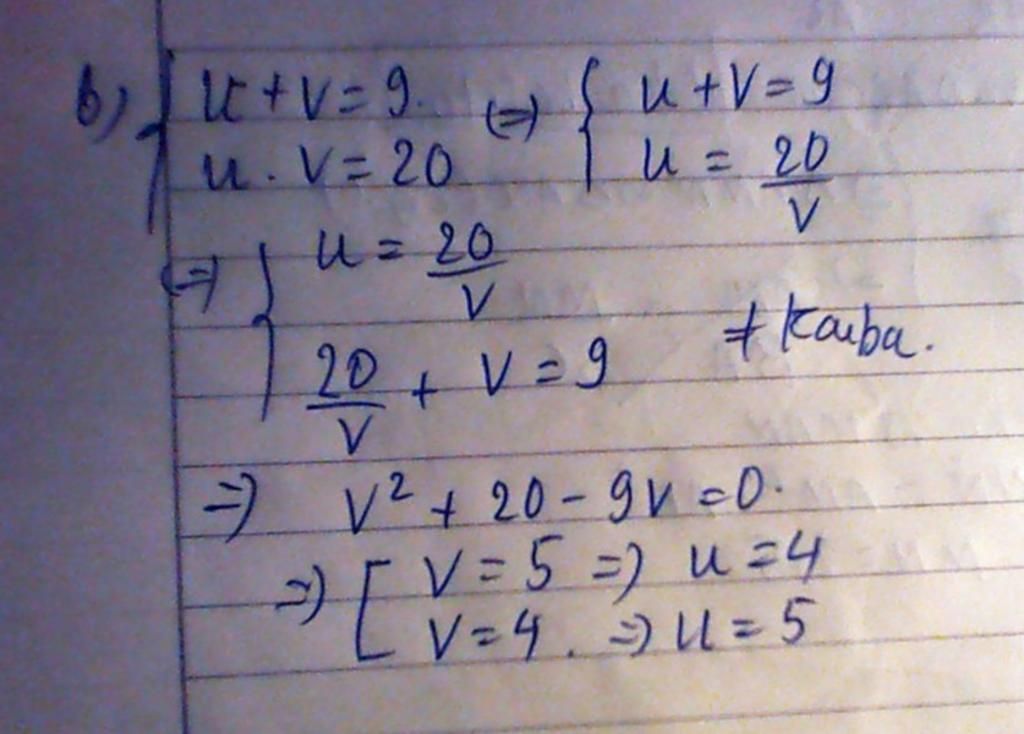 b) { u + v = 9. (=) { u + v = 9
u . v = 20 u = 20/v
(=) { u = 20/v
20/v + v = 9 ≠ Kaiba.
=) v² + 20 - 9v = 0.
=) [ v = 5 =) u = 4
v = 4 . =) u = 5